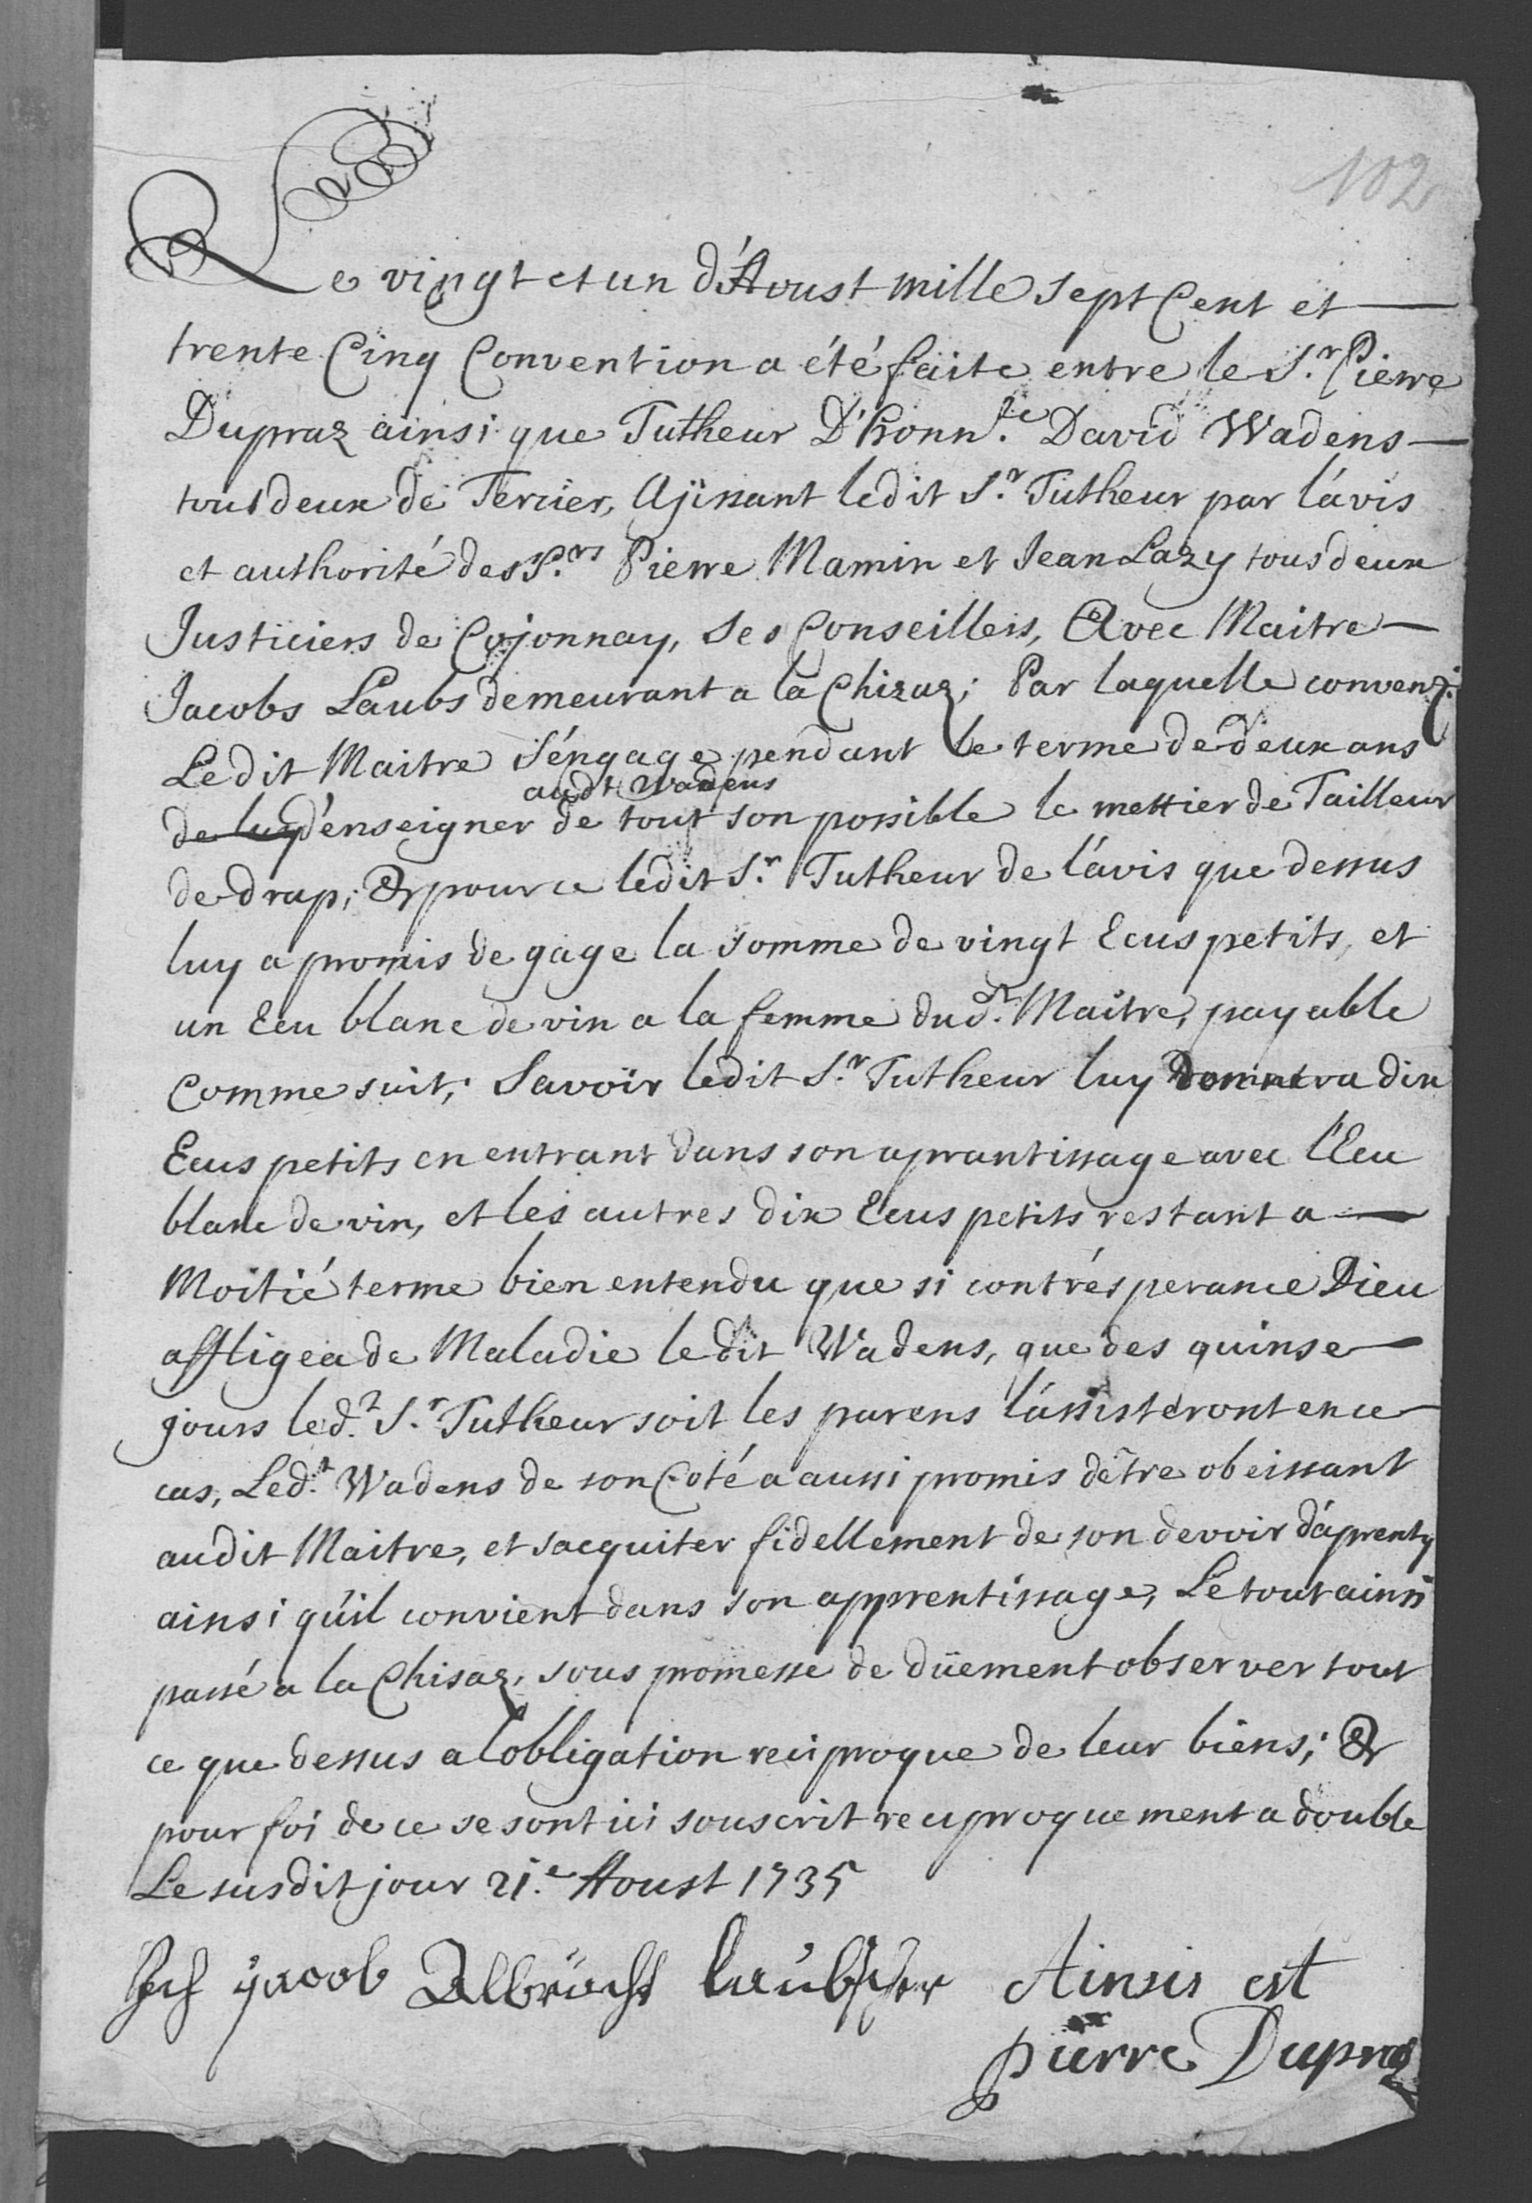 102
Le vingt et un d'Aoust mille sept Cent et
trente Cinq Convention a été faite entre le S.r Pierre
Dupraz ainsi que Tutheur D'honn.te David Wadens
tous deux de Tercier, Ajissant ledit S.r Tutheur par l'avis
et authorité des S.rs Pierre Mamin et Jean Lazy tous deux
Justiciers de Cojonnay, ses Conseillers, Avec Maitre
Jacobs Laubs demeurant a la Chizaz; Par laquelle conven.
Ledit Maitre s'éngage pendant le terme de deux ans
audt Wadens
de luy d'enseigner de tout son possible le mettier de Tailleur
de drap; & pour ce ledit S.r Tutheur de l'avis que dessus
luy a promis de gage la somme de vingt Ecus petits, et
un Ecu blanc de vin a la femme dud.t Maitre, payable
Comme suit; Savoir ledit S.r Tutheur luy donnera dix
Ecus petits en entrant dans son aprantissage avec l'Ecu
blanc de vin, et les autres dix Ecus petits restant a
Moitié terme bien entendu que si contr'ésperance Dieu
affligea de Maladie ledit Wadens, que des quinse
jours led.t S.r Tutheur soit les parens l'assisteront en ce
cas, Led.t Wadens de son Coté a aussi promis d'être obeissant
audit Maitre, et sacquiter fidellement de son devoir d'aprenty
ainsi qu'il convient dans son apprentissage, Le tout ainsi
passé a la Chisaz, sous promesse de düement observer tout
ce que dessus a lobligation reciproque de leur biens; &
pour foi de ce se sont ici souscrit reciproquement a double
Le susdit jour 21.e Aoust 1735
Ich jacob Albrächt laübscher Ainsis est
pierre Dupraz